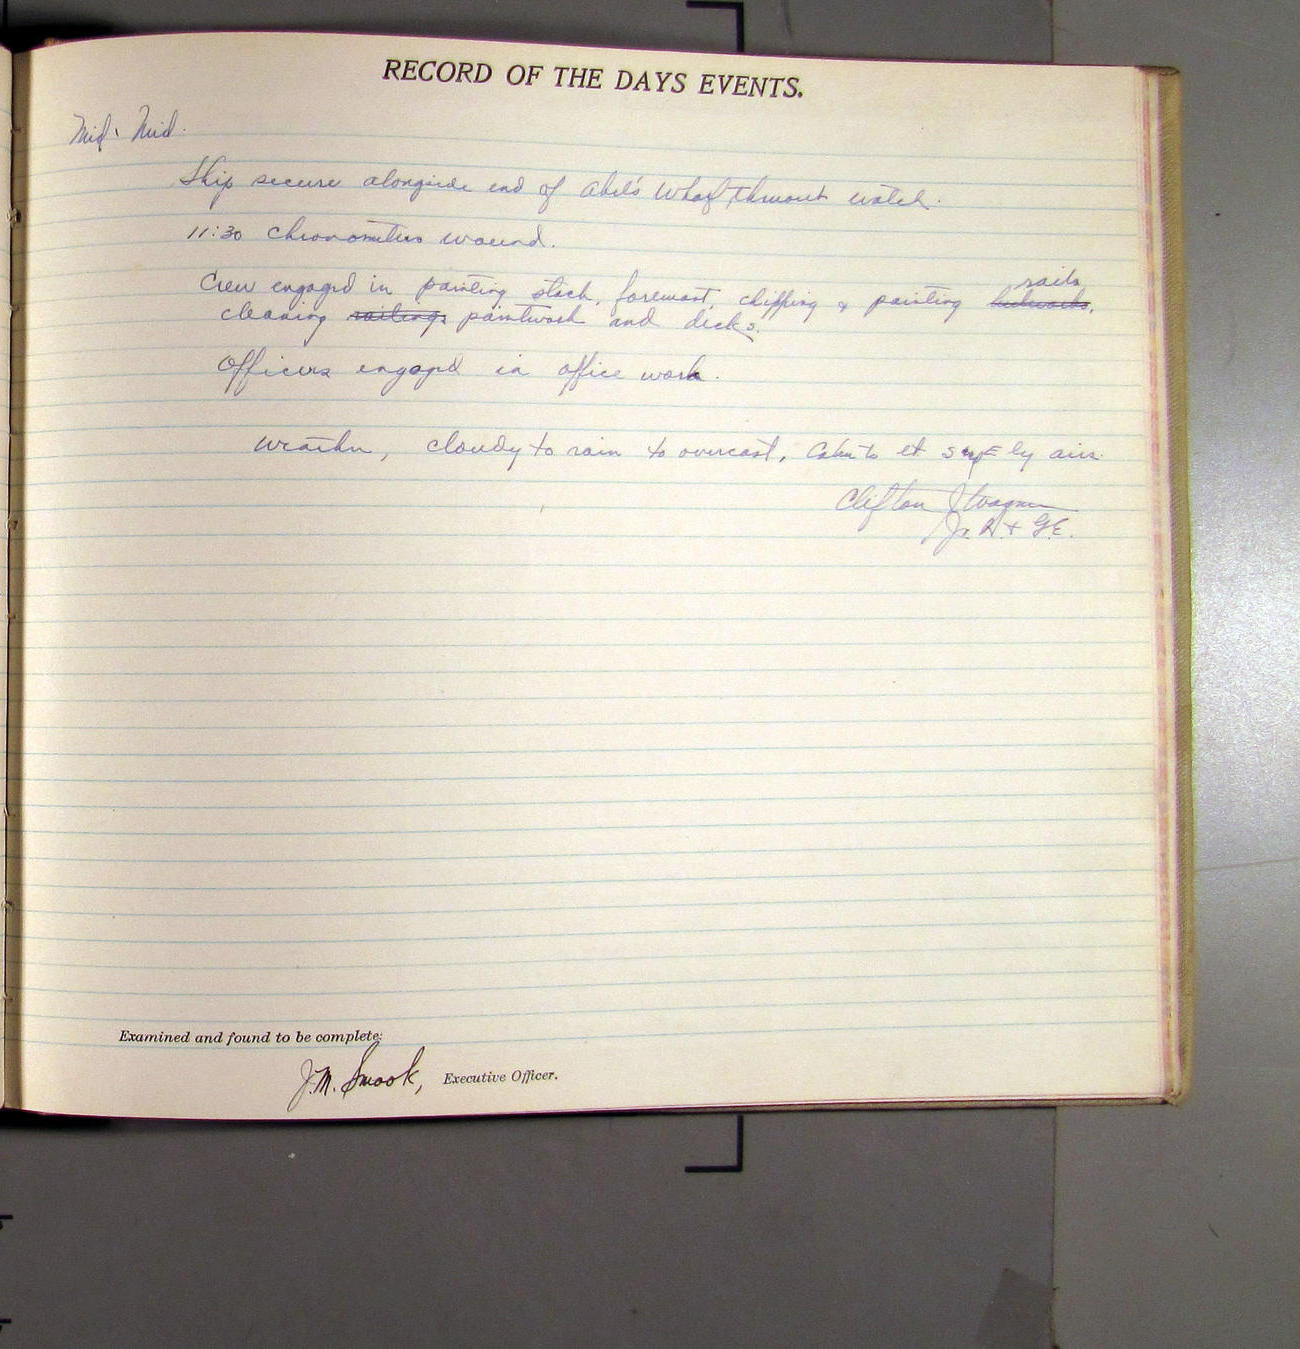 RECORD OF THE DAYS EVENTS.
Mid. Mid.
Ship secure alongside end of Abel's Wharf thruout watch.
11:30 Chronometers wound.
rails
Crew engaged in painting stack, foremast, chipping & painting bulwarks,
cleaning railings paintwork and decks.
Officers engaged in office work.
Weather, cloudy to rain to overcast, Calm to lt ly airs
Clifton J. Wagner
Jr. H. & G.E.
Examined and found to be complete:
J.M. Smook, Executive Officer.